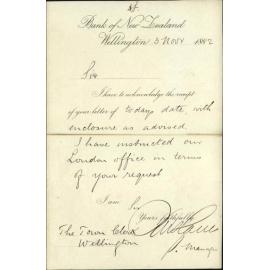 Bank of New Zealand
Wellington 3 Novr 1882
Sir
I have to acknowledge the receipt
of your letter of todays date, with
enclosure as advised.
I have instructed our
London office in terms
of your request
I am Sir
Yours faithfully
The Town Clerk
Wellington
Manager